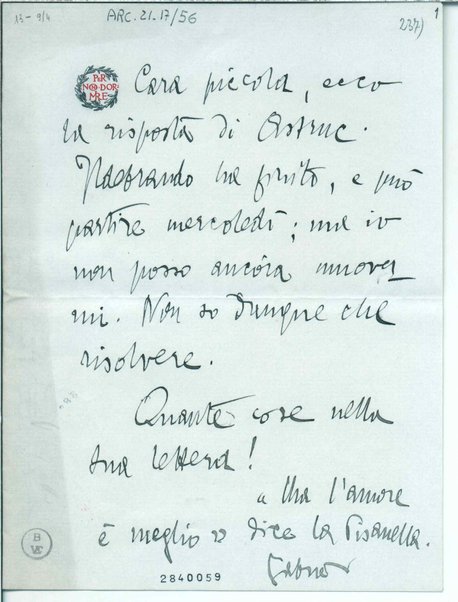 13-9/4
ARC. 21. 17/56
237)
1
PER
NON DOR-
MIRE
Cara piccola, ecco
la risposta di Astruc.
Ildebrando ha finito, e può
partire mercoledì; ma io
non posso ancóra muover
mi. Non so dunque che
risolvere.
Quante cose nella
sua lettera!
« Ma l'amore
è meglio » dice la Pisanella.
2840059